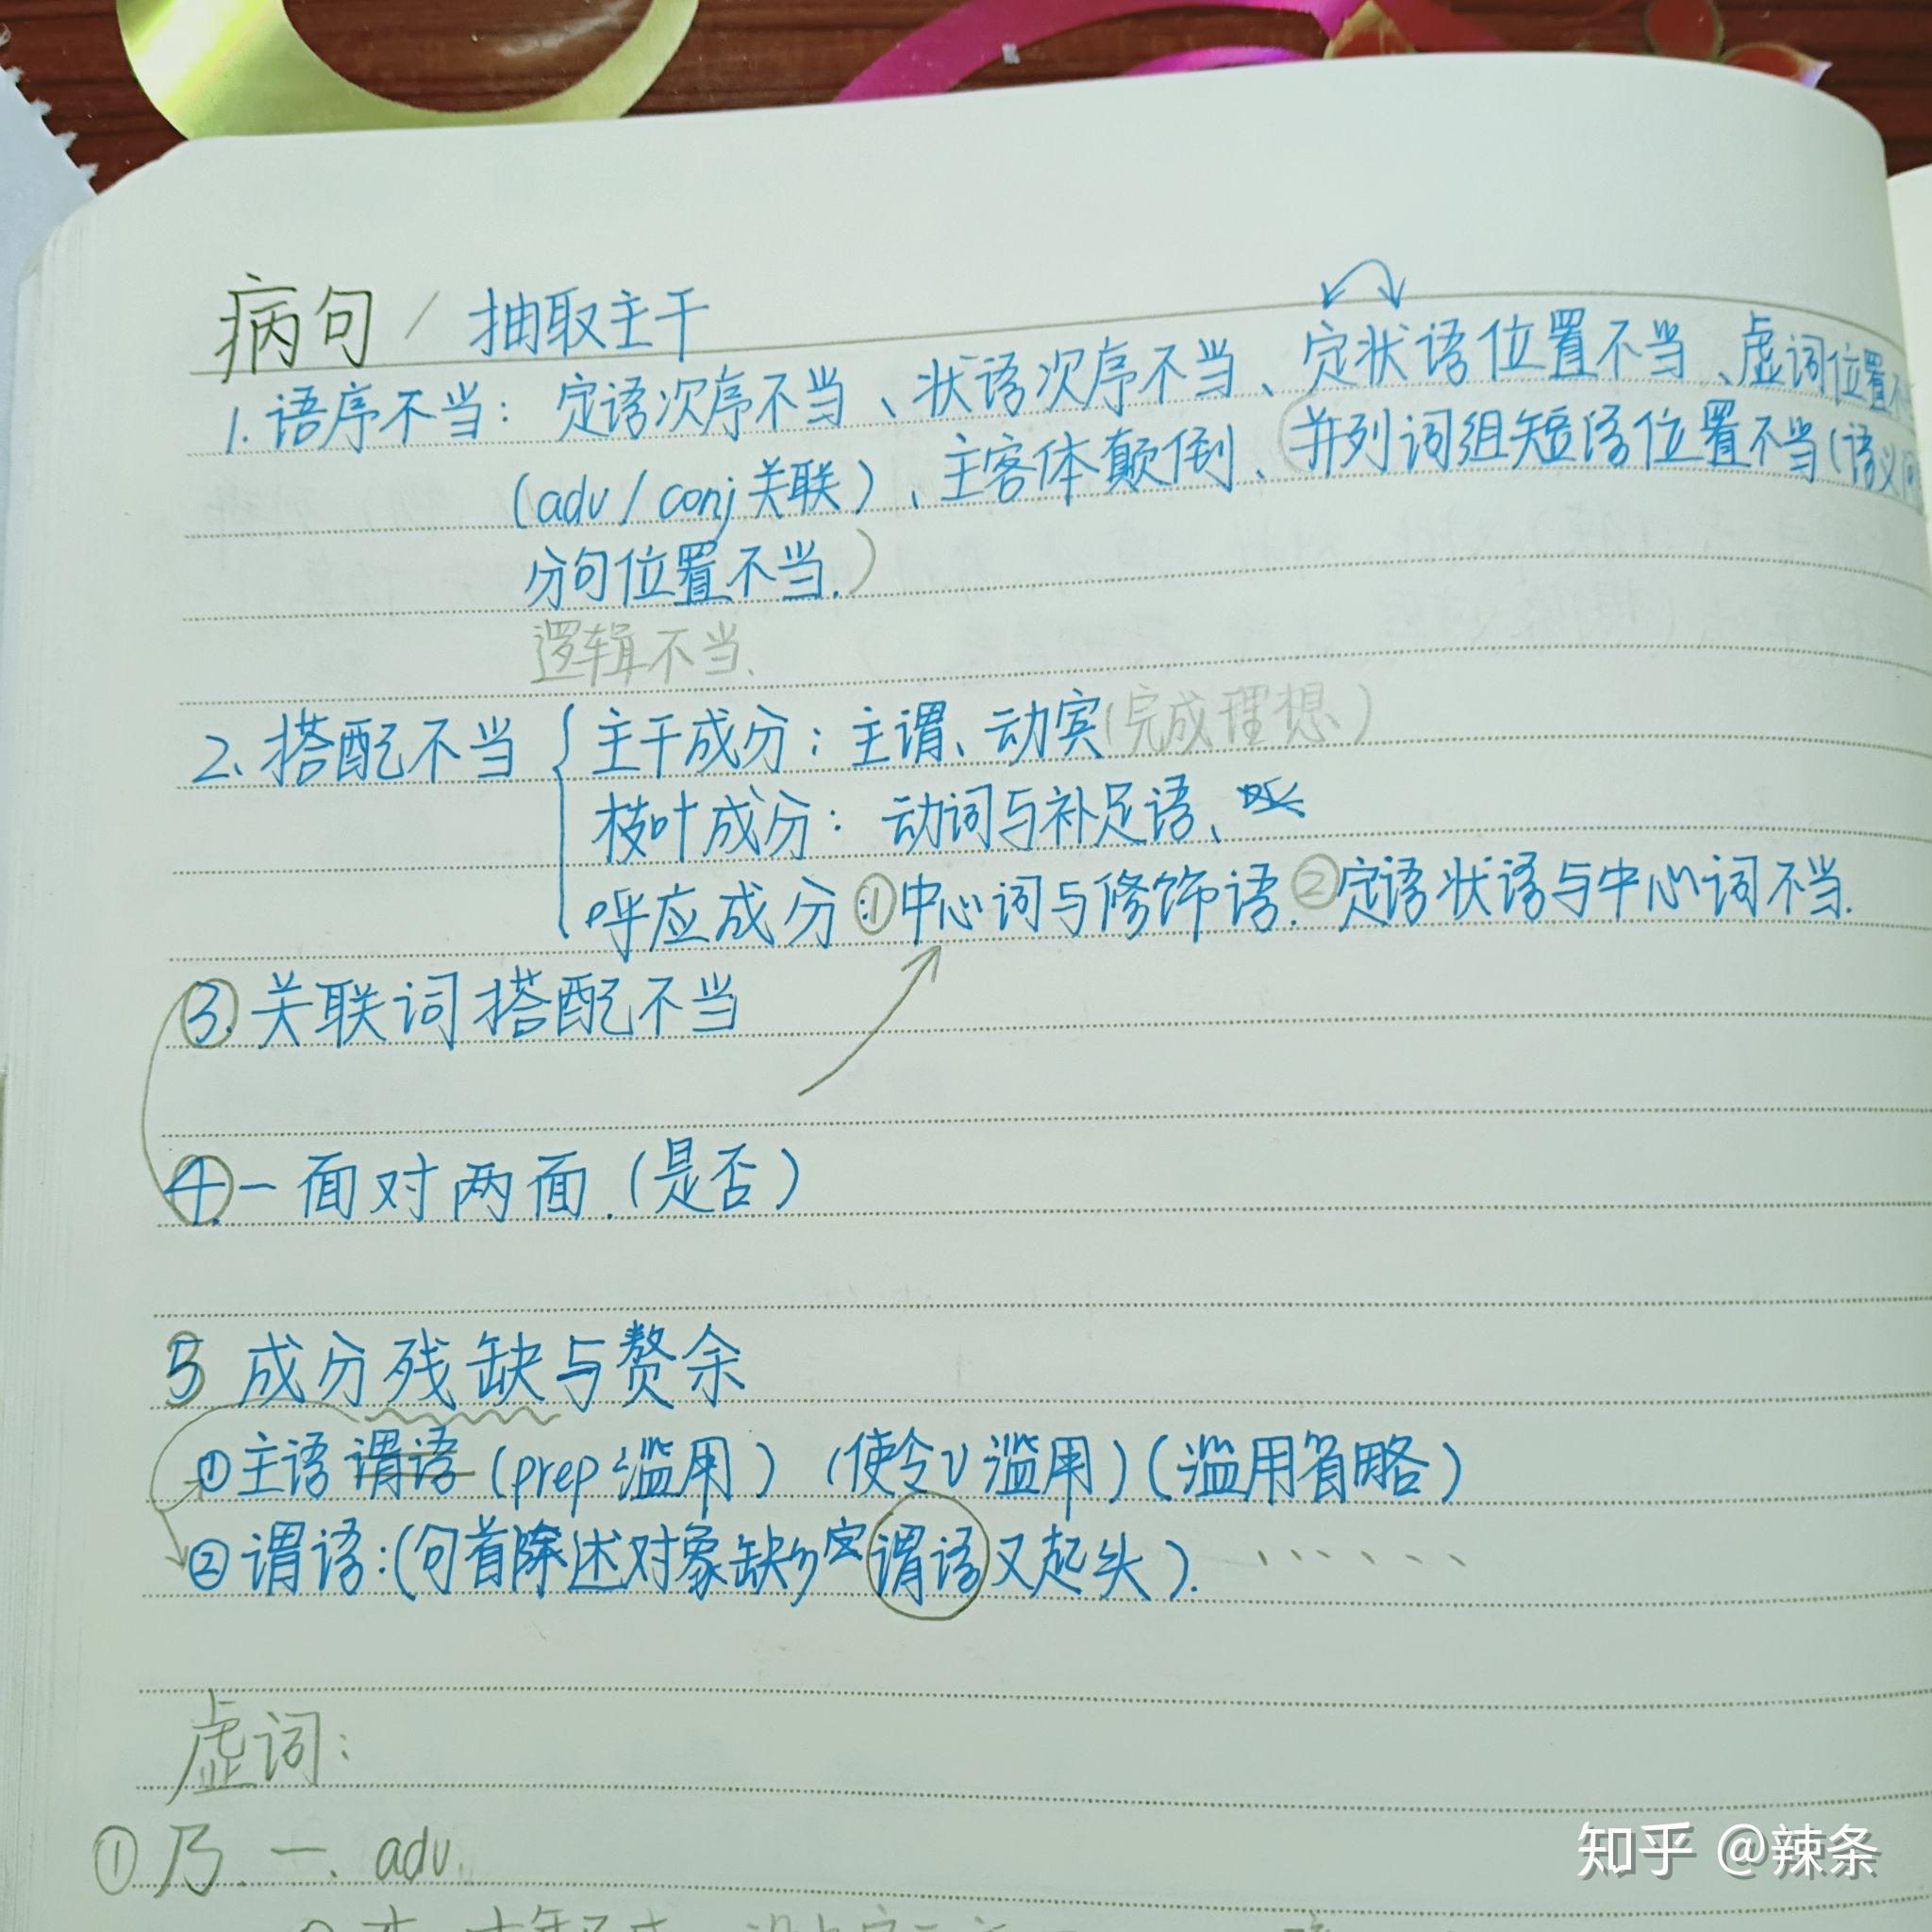 病句 / 抽取主干
1. 语序不当：定语次序不当、状语次序不当、定状语位置不当、虚词位置
(adv / conj 关联)、主客体颠倒、并列词组短语位置不当(语义
分句位置不当.)
逻辑不当.
2. 搭配不当 { 主干成分：主谓、动宾(完成理想)
枝叶成分：动词与补足语、
呼应成分:①中心词与修饰语.②定语状语与中心词不当.
③.关联词搭配不当
④.一面对两面.(是否)
5 成分残缺与赘余
①主语 谓语 (prep 滥用) (使令v滥用)(滥用省略)
②谓语:(句首陈述对象缺少 谓语又起头). ......
虚词：
①乃 一. adv.
知乎 @辣条